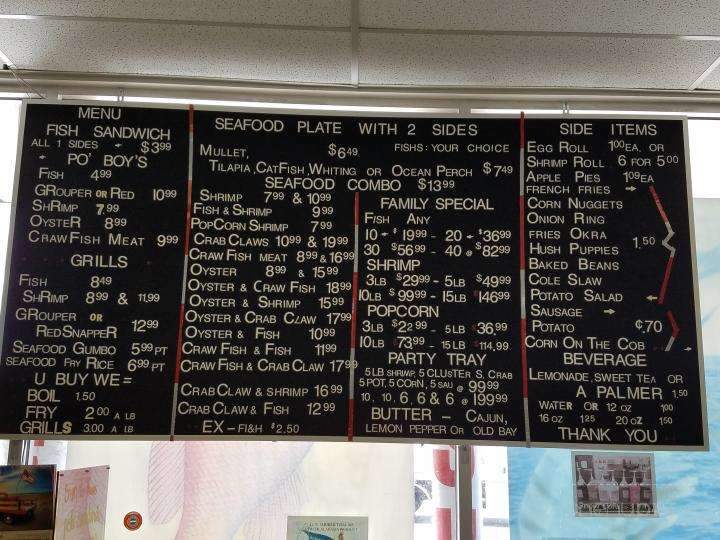 MENU
FISH SANDWICH
ALL 1 SIDES $3.99
PO' BOY'S
FISH 4.99
GROUPER OR RED 10.99
SHRIMP 7.99
OYSTER 8.99
CRAWFISH MEAT 9.99
GRILLS
FISH 8.49
SHRIMP 8.99 & 11.99
GROUPER OR
RED SNAPPER 12.99
SEAFOOD GUMBO 5.99 PT
SEAFOOD FRY RICE 6.99 PT
U BUY WE =
BOIL 1.50
FRY 2.00 A LB
GRILLS 3.00 A LB
SEAFOOD PLATE WITH 2 SIDES
MULLET, $6.49 FISHS: YOUR CHOICE
TILAPIA, CATFISH, WHITING OR OCEAN PERCH $7.49
SEAFOOD COMBO $13.99
SHRIMP 7.99 & 10.99
FISH & SHRIMP 9.99
POPCORN SHRIMP 7.99
CRAB CLAWS 10.99 & 19.99
CRAW FISH MEAT 8.99 & 16.99
OYSTER 8.99 & 15.99
OYSTER & CRAW FISH 18.99
OYSTER & SHRIMP 15.99
OYSTER & CRAB CLAW 17.99
OYSTER & FISH 10.99
CRAW FISH & FISH 11.99
CRAW FISH & CRAB CLAW 17.99
CRAB CLAW & SHRIMP 16.99
CRAB CLAW & FISH 12.99
EX - FI&H $2.50
FAMILY SPECIAL
FISH ANY
10 - $19.99 - 20 - $36.99
30 $56.99 - 40 @ $82.99
SHRIMP
3LB $29.99 - 5LB $49.99
10LB $99.99 - 15LB $146.99
POPCORN
3LB $22.99 - 5LB $36.99
10LB $73.99 - 15LB $114.99
PARTY TRAY
5LB SHRIMP, 5 CLUSTER S. CRAB
5 POT, 5 CORN, 5 SAU @ 99.99
10, 10, 6, 6 & 6 @ 199.99
BUTTER - CAJUN,
LEMON PEPPER OR OLD BAY
SIDE ITEMS
EGG ROLL 1.00 EA. OR
SHRIMP ROLL 6 FOR 5.00
APPLE PIES 1.09 EA
FRENCH FRIES
CORN NUGGETS
ONION RING
FRIES OKRA
HUSH PUPPIES 1.50
BAKED BEANS
COLE SLAW
POTATO SALAD
SAUSAGE
POTATO ¢.70
CORN ON THE COB
BEVERAGE
LEMONADE, SWEET TEA OR
A PALMER 1.50
WATER OR 12 OZ 1.00
16 OZ 1.25 20 OZ 1.50
THANK YOU